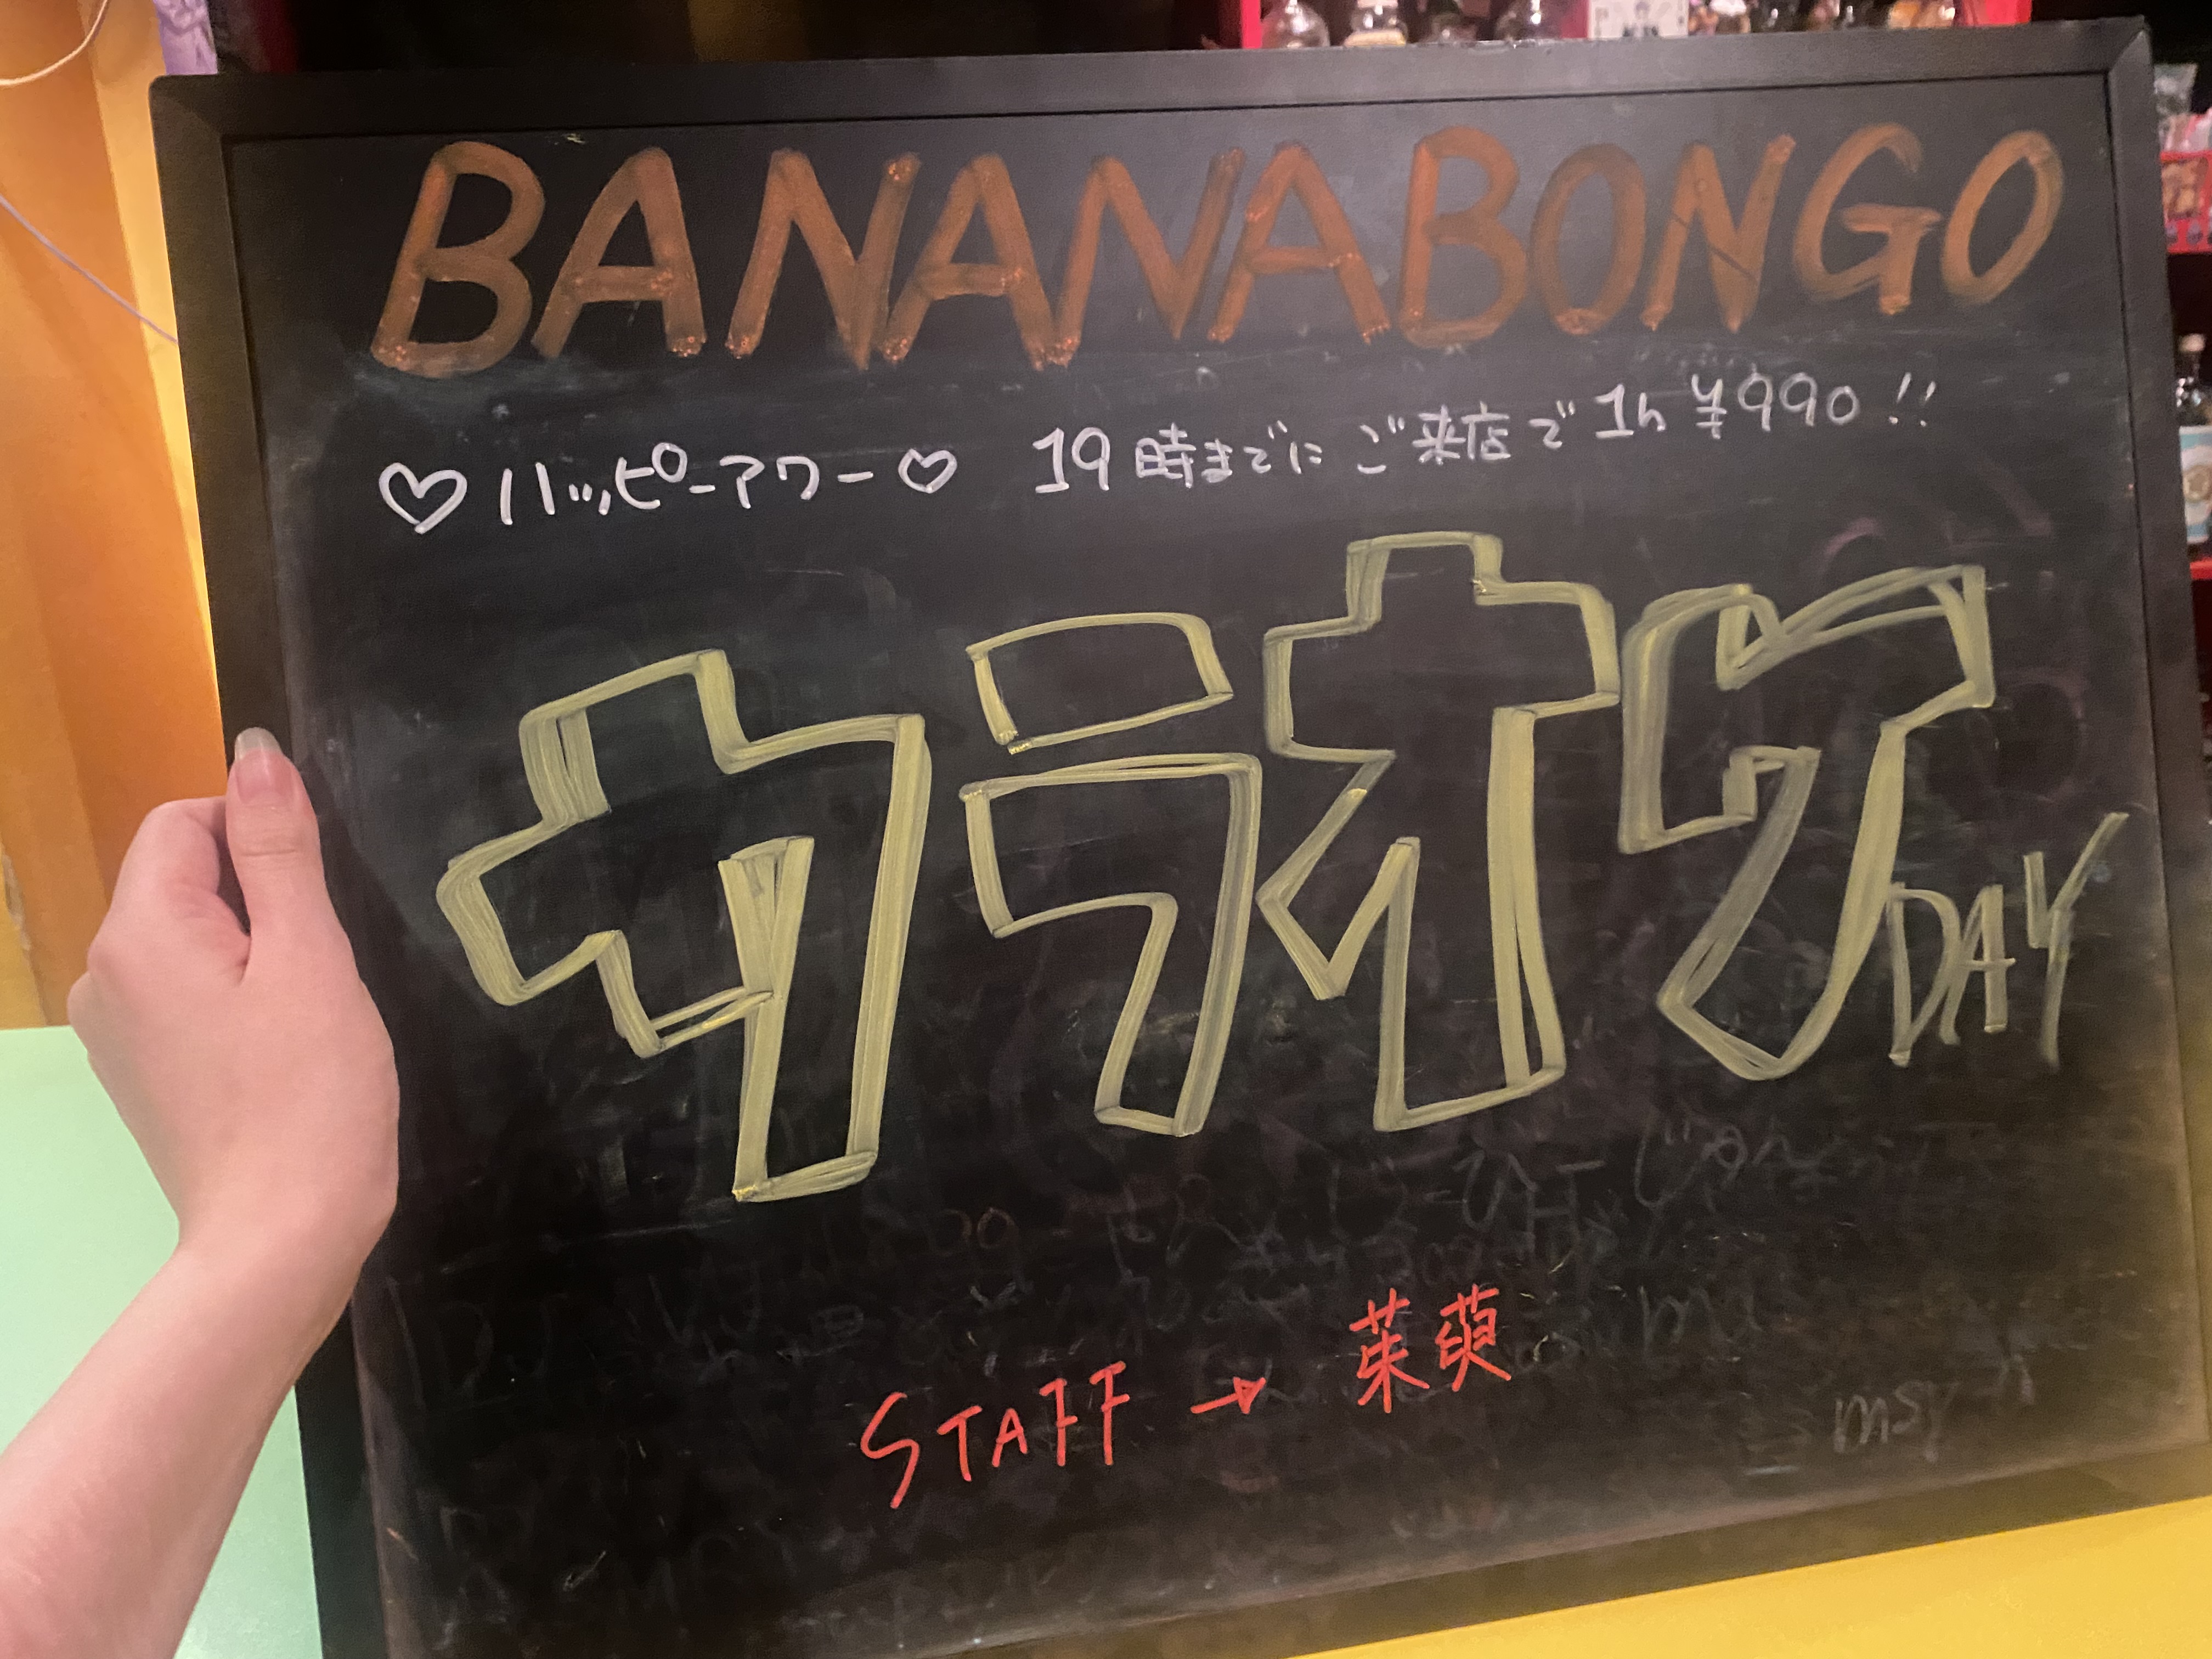 BANANABONGO
♡ハッピーアワー♡ 19時までにご来店で1h ¥990!!
カラオケDAY
STAFF → 茱萸